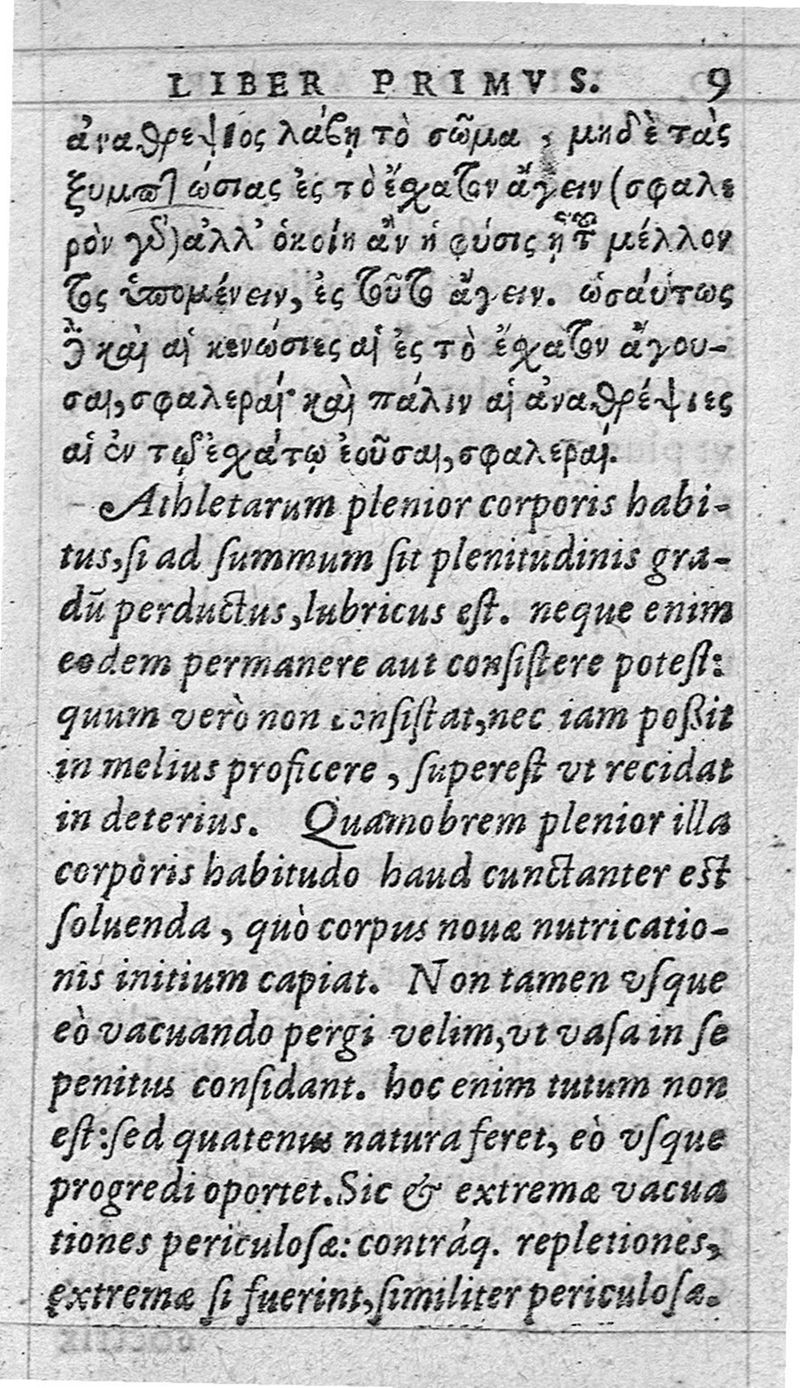 LIBER PRIMVS. 9
ἀναθρέψιος λάβῃ τὸ σῶμα, μηδὲ τὰς
ξυμπτώσιας ἐς τὸ ἔσχατον ἄγειν (σφαλε
ρὸν γὰρ) ἀλλ' ὁκοίη ἂν ἡ φύσις ᾖ τοῦ μέλλον
τος ὑπομένειν, ἐς τοῦτο ἄγειν. ὡσαύτως
δὲ καὶ αἱ κενώσιες αἱ ἐς τὸ ἔσχατον ἄγου-
σαι, σφαλεραί· καὶ πάλιν αἱ ἀναθρέψιες
αἱ ἐν τῷ ἐσχάτῳ ἐοῦσαι, σφαλεραί.
Athletarum plenior corporis habi-
tus, ſi ad ſummum ſit plenitudinis gra-
dū perductus, lubricus eſt. neque enim
eodem permanere aut conſiſtere poteſt:
quum verò non conſiſtat, nec iam poßit
in melius proficere, ſupereſt vt recidat
in deterius. Quamobrem plenior illa
corporis habitudo haud cunctanter eſt
ſoluenda, quò corpus nouæ nutricatio-
nis initium capiat. Non tamen vſque
eò vacuando pergi velim, vt vaſa in ſe
penitus conſidant. hoc enim tutum non
eſt: ſed quatenus natura feret, eò vſque
progredi oportet. Sic & extremæ vacua
tiones periculoſæ: contráq. repletiones,
extremæ ſi fuerint, ſimiliter periculoſæ.